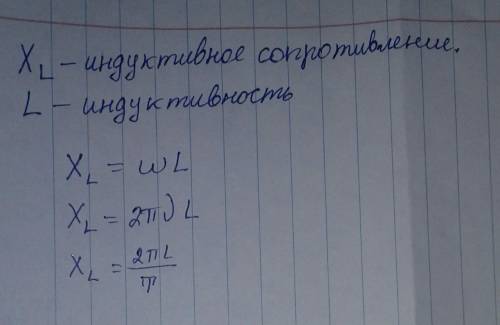 X_L – индуктивное сопротивление.
L – индуктивность
X_L = ωL
X_L = 2πνL
X_L = 2πL/T